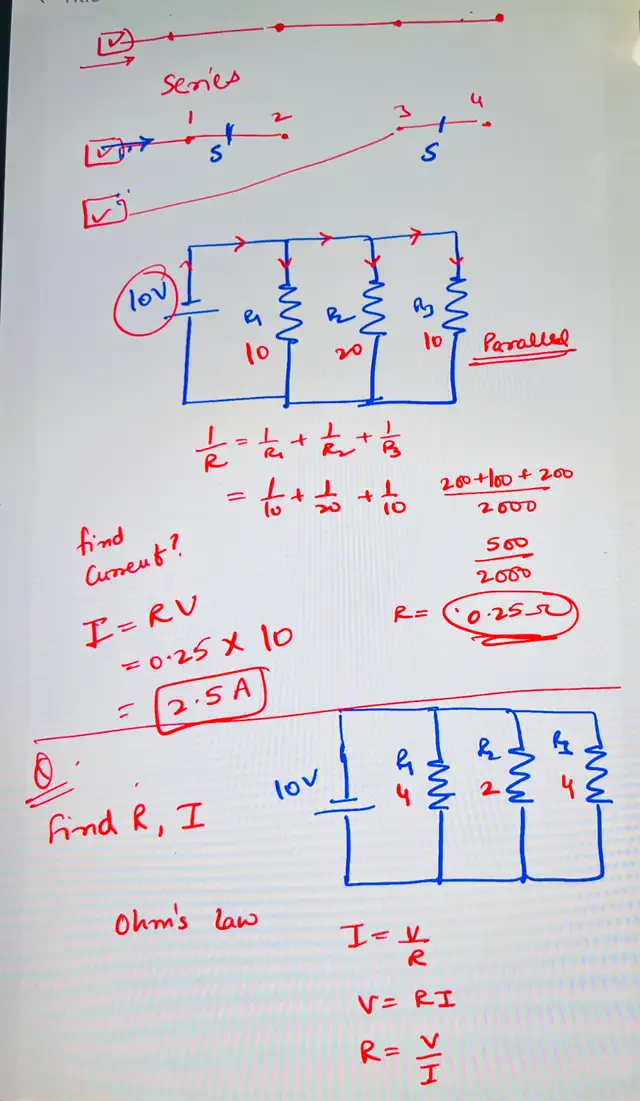 Series
1 2 3 4
S S
10V
R1 R2 R3
10 20 10
Paralled
1/R = 1/R1 + 1/R2 + 1/R3
= 1/10 + 1/20 + 1/10
200+100+200/2000
500/2000
R = 0.25Ω
find
Current?
I = RV
= 0.25 × 10
= 2.5 A
Q.
find R, I
10V
R1 R2 R3
4 2 4
Ohm's law
I = V/R
V = RI
R = V/I